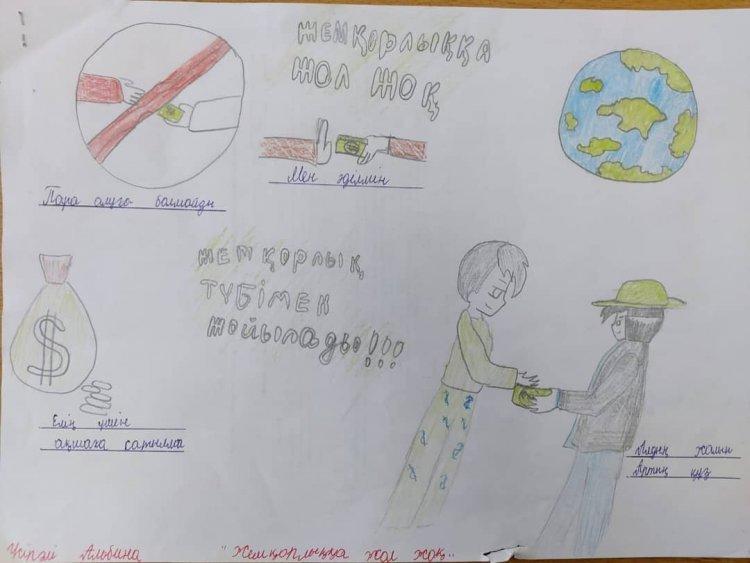 ЖЕМҚОРЛЫҚҚА
ЖОЛ ЖОҚ
Пара алуға болмайды
Мен әделмін
ЖЕМҚОРЛЫҚ
ТҮБІМЕН
жойылады!!!
$
Елің үшін
ақшаға сатылма
Алдың жалын
Артың құз
Альбина "Жемқорлыққа жол жоқ"